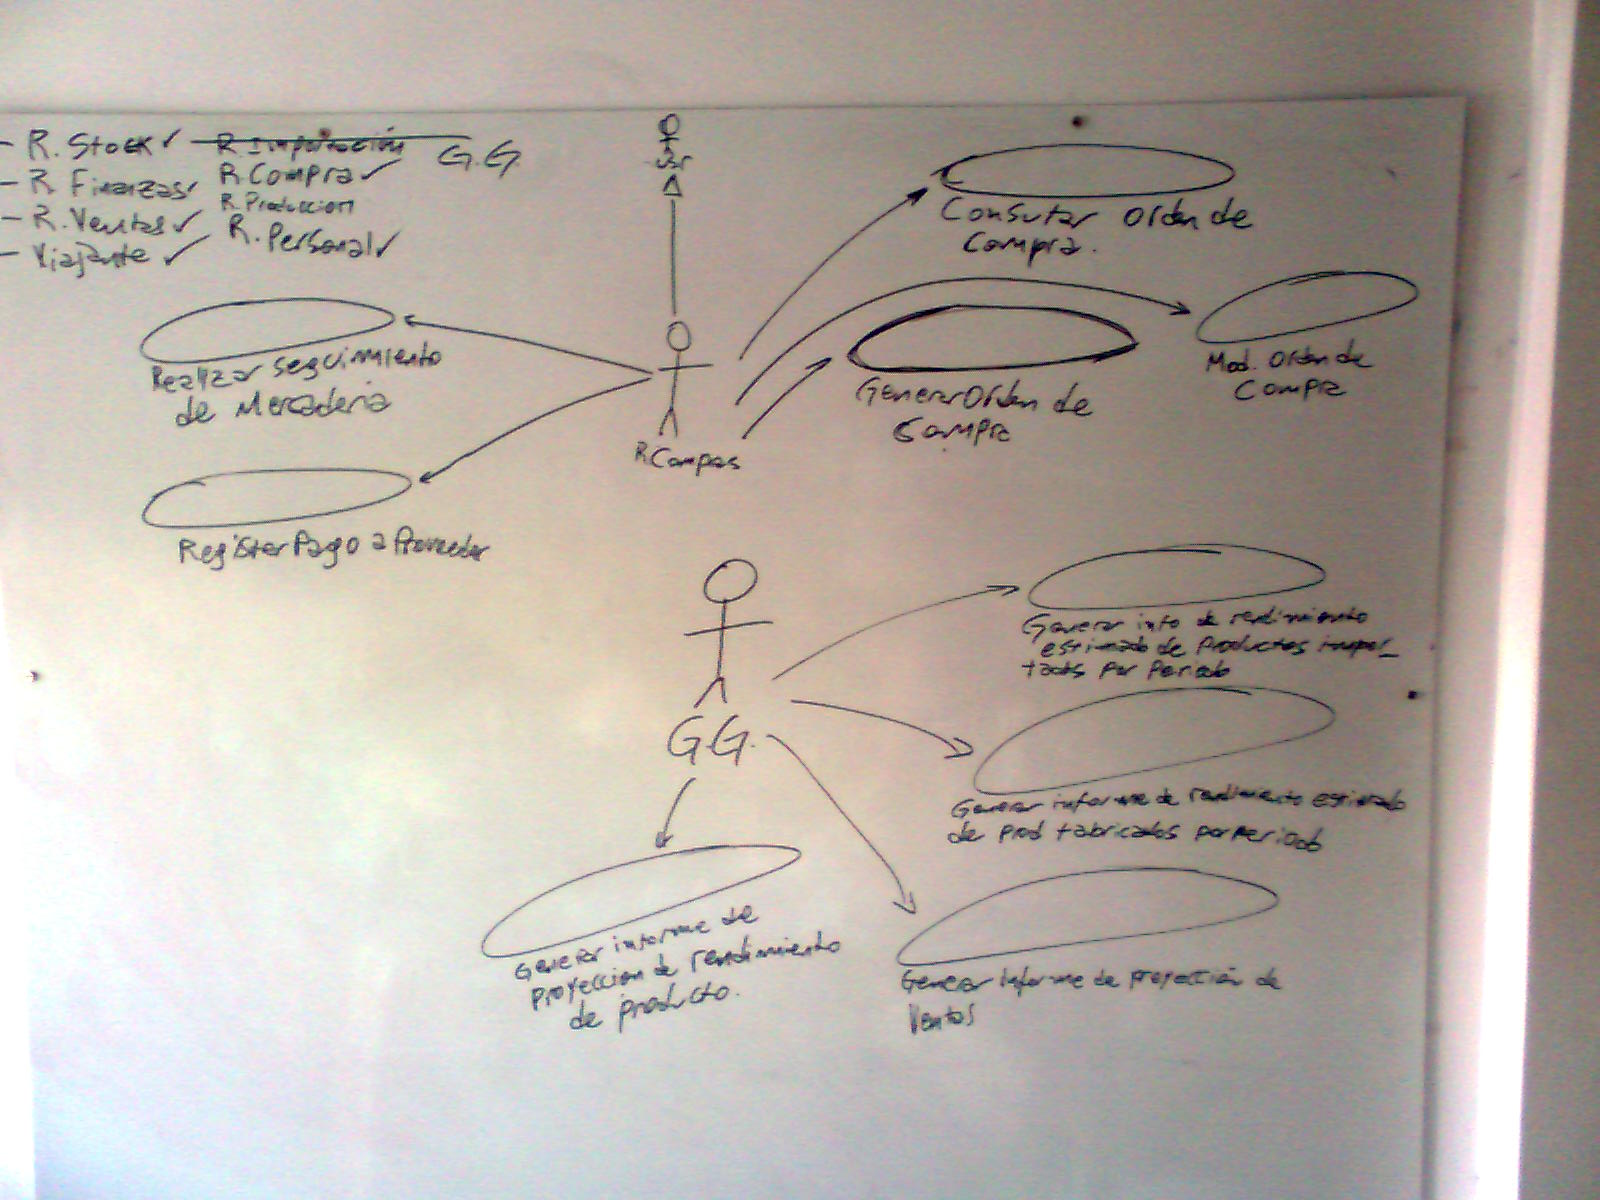 - R. Stock ✓ R. Importación G.G
- R Finanzas ✓ R Compra ✓
R. Produccion
- R. Ventas ✓ R. Personal ✓
- Viajante ✓
Usr
Consutar Orden de
Compra.
Realizar seguimiento
de Mercaderia
Mod. Orden de
Compra
Generar Orden de
Compra
R Compas
Registar Pago a Proveedor
Generar info de rendimiento
estimado de Productos impor_
tados por Periodo
G.G.
Generar informe de rendimiento estimado
de prod fabricados por periodo
Generar informe de
proyeccion de rendimiento
de producto.
Generar informe de proyección de
Ventas